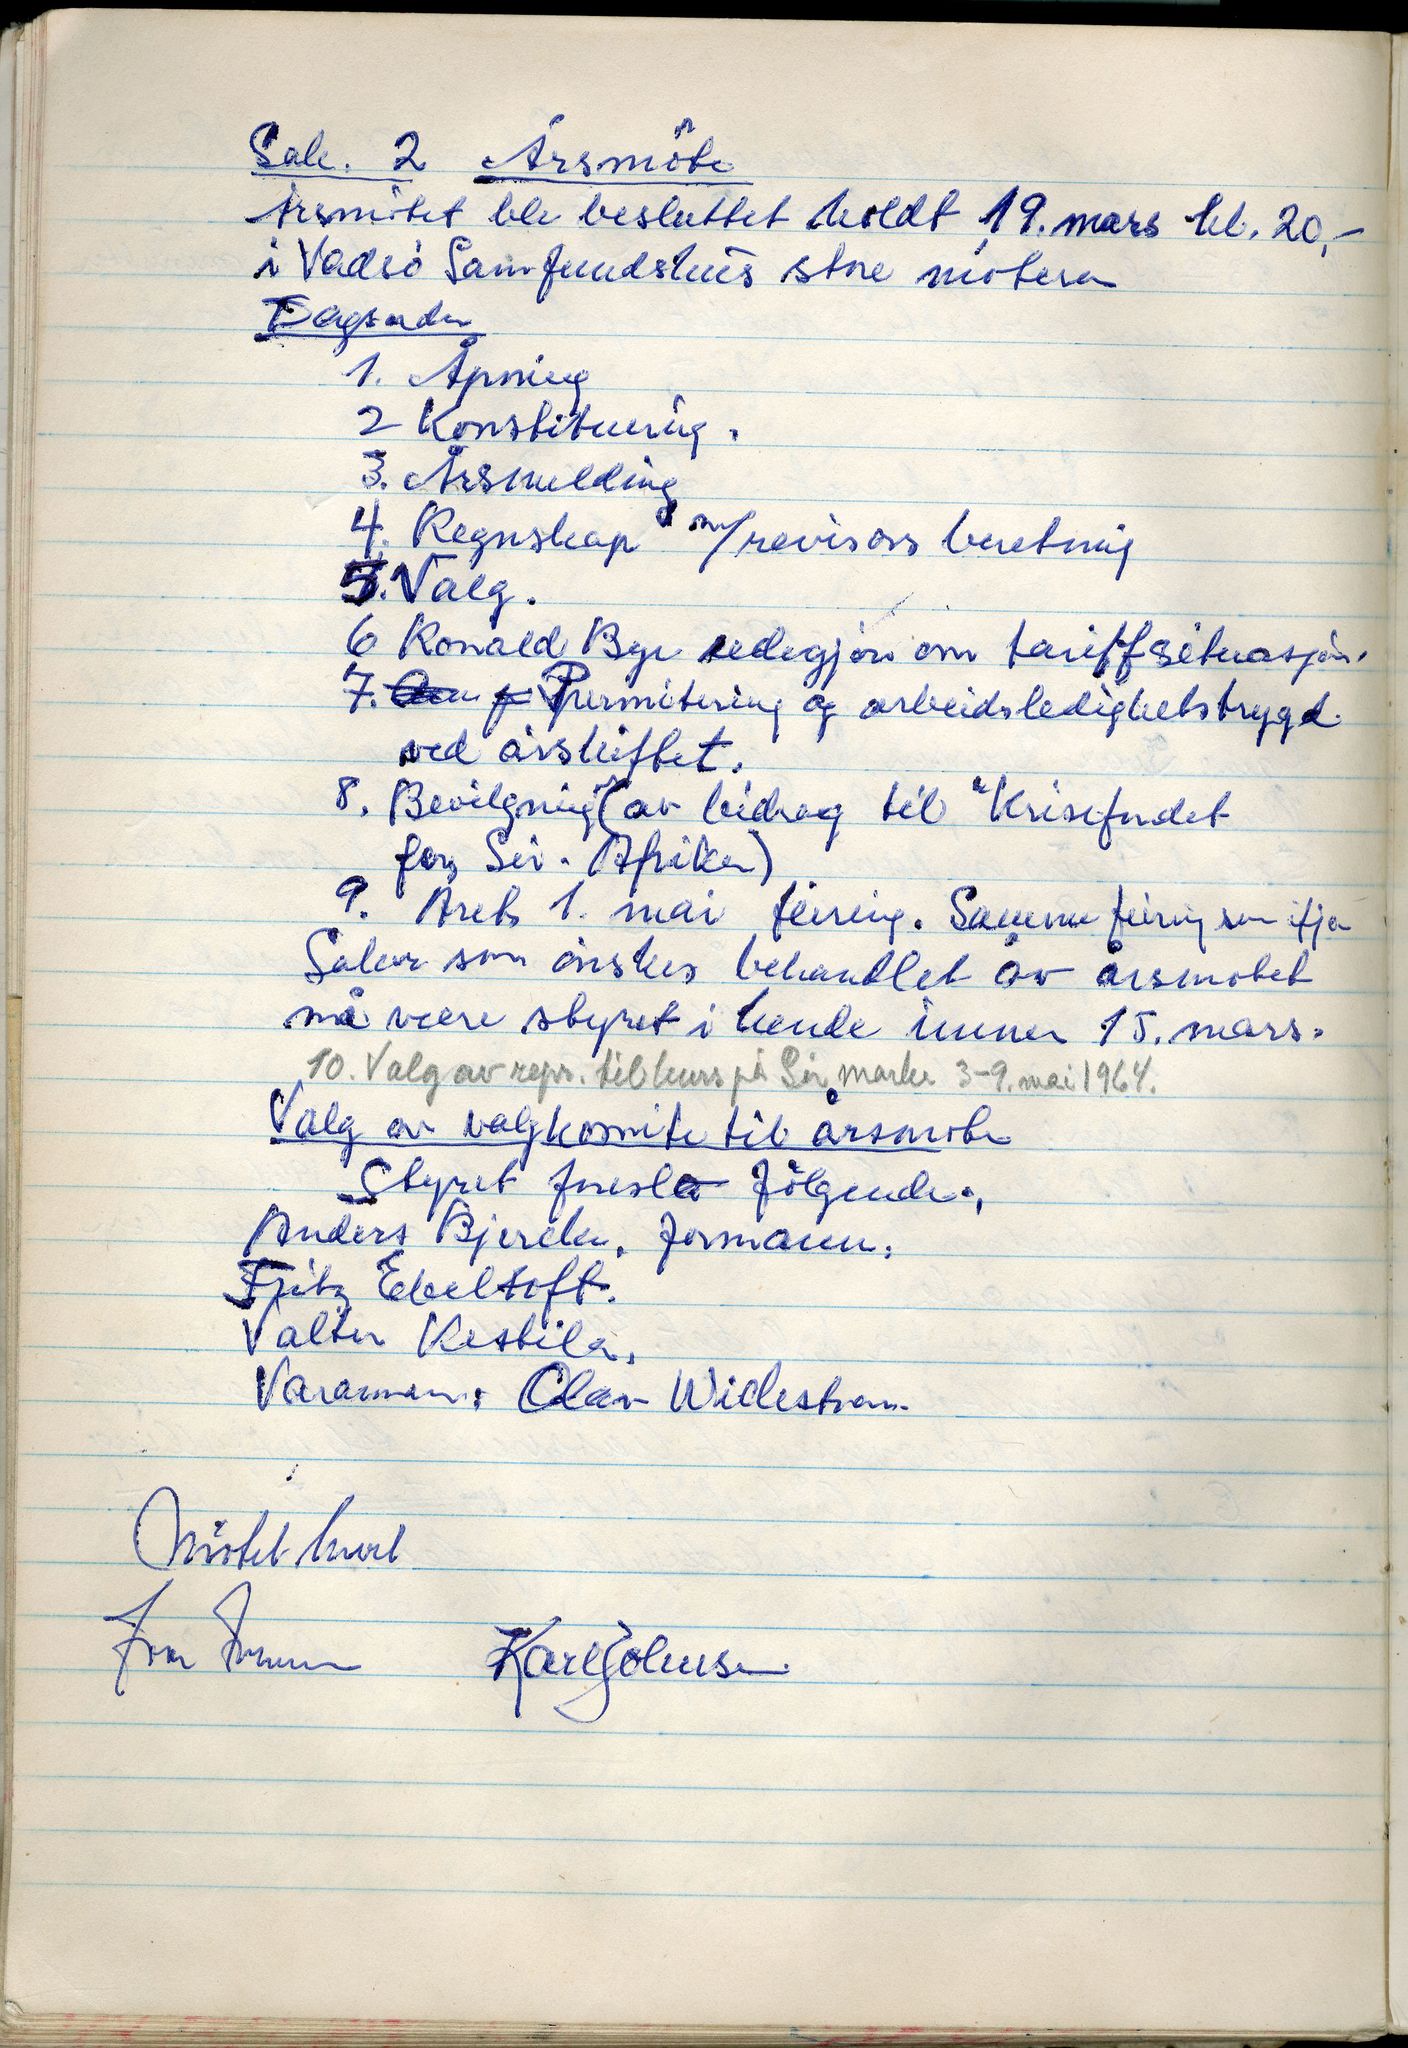 Sak. 2 Årsmöte
Årsmötet ble besluttet holdt 19. mars kl. 20,-
i Vadsö Samfundshus store möterom
Dagsorden
1. Åpning
2 Konstituering.
3. Årsmelding
4. Regnskap m/revisors beretning
5. Valg.
6 Ronald Bye redegjör om tariffsituasjon.
7. Permitering og arbeidsledighetstrygd
ved årskiftet.
8. Bevilgning (av bidrag til "Krisefondet
for Sör-Afrika)
9. Årets 1. mai feiring. Samme feiring som ifjor
Saker som önskes behandlet av årsmötet
må være styret i hende innen 15. mars.
10. Valg av repr. til kurs på Sörmarka 3-9. mai 1964.
Valg av valgkomite til årsmöte
Styret foreslo fölgende.,
Anders Bjerck, formann.
Fritz Ebeltoft.
Valter Kestila.
Varamann: Olav Widestrom.
Mötet hevet
Karl Johnsen